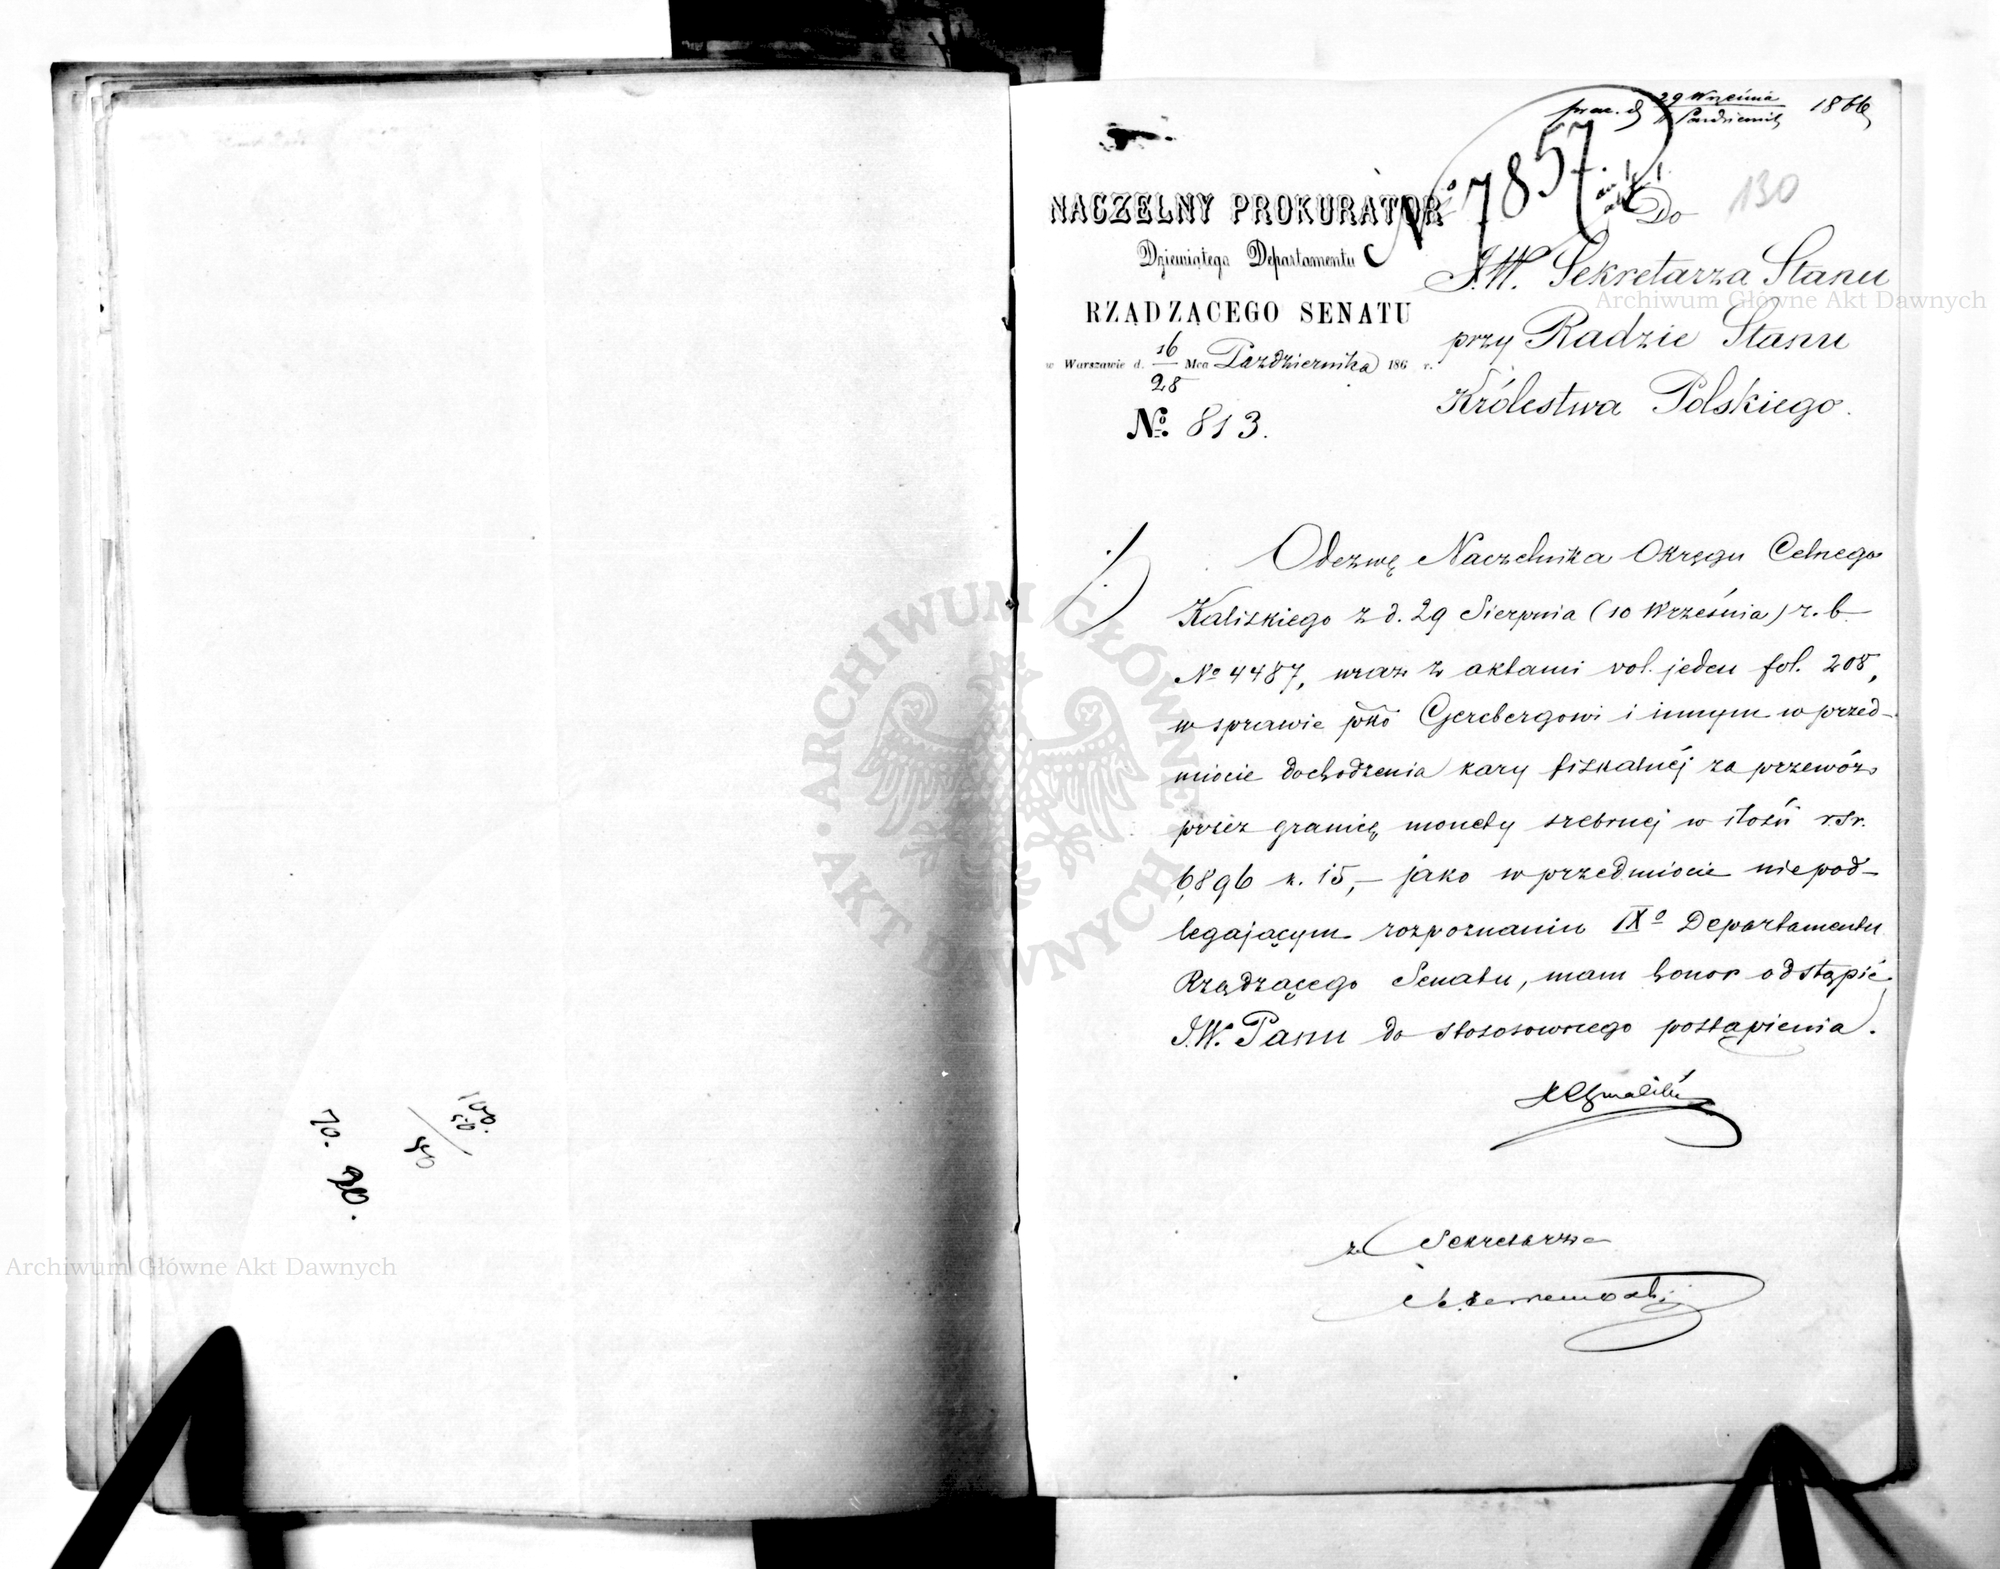 100.
50
50
70.
20.
29 Września
Października
1866
130
No 7857.
NACZELNY PROKURATOR
Dziewiątego Departamentu
RZĄDZĄCEGO SENATU
w Warszawie d. 16/28 Mca Października 186 r.
No. 813.
Do
J.W. Sekretarza Stanu
przy Radzie Stanu
Królestwa Polskiego.
Odezwę Naczelnika Okręgu Celnego
Kaliskiego z d. 29 Sierpnia (10 Września) r. b.
No 4487, wraz z aktami vol. jeden fol. 208,
w sprawie pko Gerebergowi i innym w przed-
miocie dochodzenia kary fiskalnéj za przewóz
przez granicę monety srebrnej w ilości r.sr.
6896 k. 15,- jako w przedmiocie niepod-
legającym rozpoznaniu IXo Departamentu
Rządzącego Senatu, mam honor odstąpić
J.W. Panu do stososownego postąpienia.
za Sekretarza
Archiwum Główne Akt Dawnych
Archiwum Główne Akt Dawnych
ARCHIWUM GŁÓWNE AKT DAWNYCH